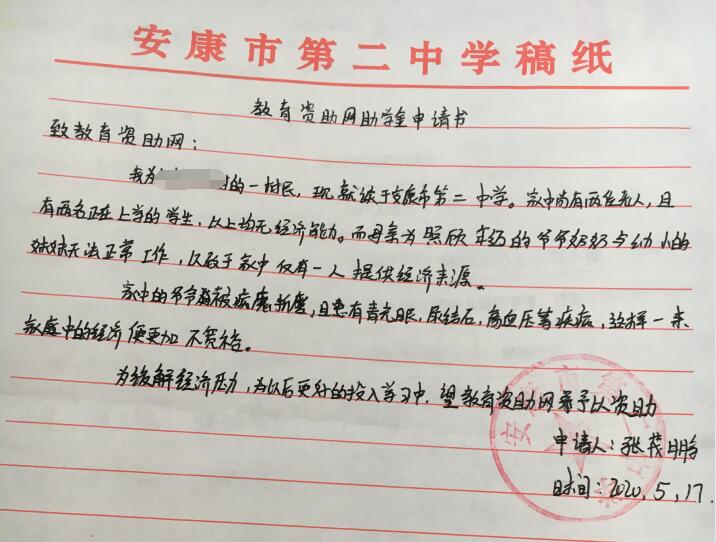 安康市第二中学稿纸
教育资助网助学金申请书
致教育资助网：
我为村的一村民，现就读于安康市第二中学。家中尚有两位老人，且
有两名正在上学的学生，以上均无经济能力。而母亲为照顾年迈的爷爷奶奶与幼小的
妹妹无法正常工作，以致于家中仅有一人提供经济来源。
家中的爷爷被病魔折磨，且患有青光眼，尿结石，高血压等疾病，这样一来
家庭中的经济便更加不
为缓解经济压力，为以后更好的投入学习中，望教育资助网予以资助
申请人：张茂鹏
时间：2020.5.17.
安康市第二中学